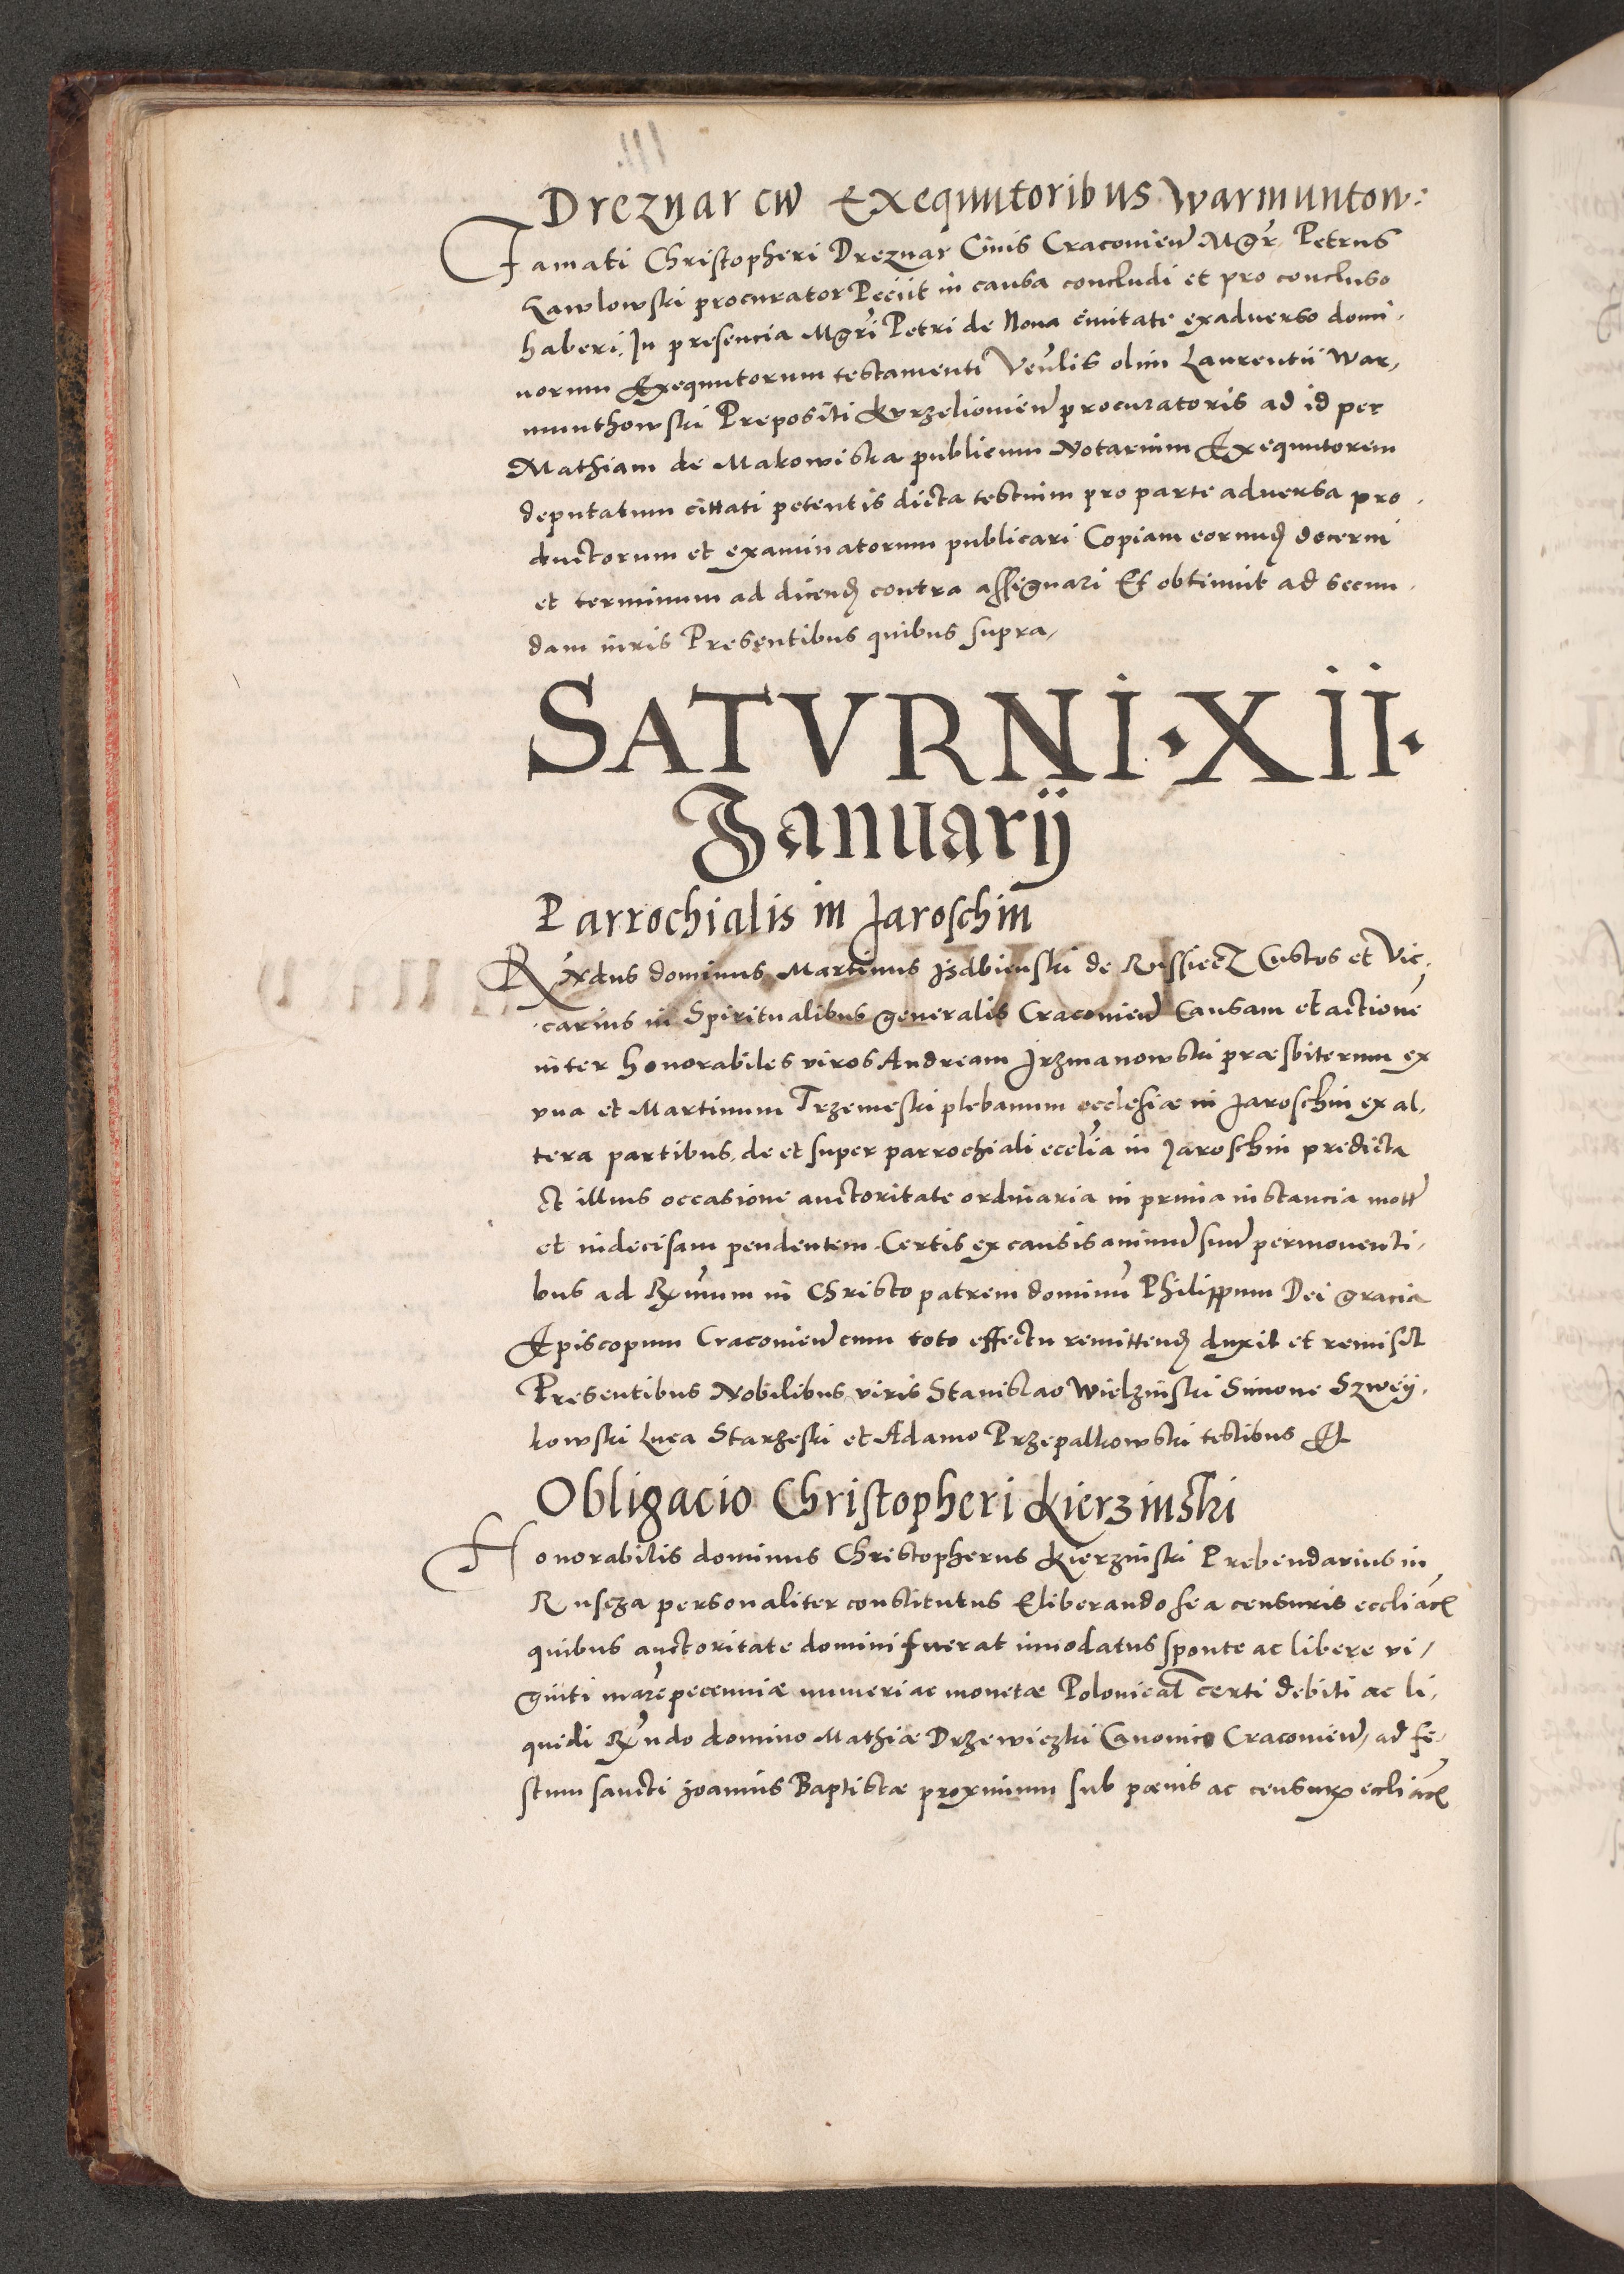 Dreznar cū Exequutoribus Warmuntow:
Famati Christopheri Dreznar Civis Cracovieñ Mgr̃ Petrus
Gawlowski procurator Peciit in causa concludi et pro concluso
haberi. In presencia Mgr̃i Petri de Nova civitate exadverso domi-
norum Exequutorum testamenti Veñlis olim Laurentii War-
munthowski Prepositi Kurzeliovieñ procuratoris ad id per
Mathiam de Makowiska publicum Notarium Exequutorem
deputatum cittati petentis dicta testium pro parte adversa pro-
ductorum et examinatorum publicari Copiam eorumd̃ decerni
et terminum ad dicend̃ contra assignari Et obtinuit ad secun-
dam iuris Presentibus quibus supra,
SATVRNI·XII·
Januarij
Parrochialis in Jaroschin
Rx̃dus dominus Martinus Izdbienski de Russiecz Custos et Vic-
carius in Spiritualibus generalis Cracovieñ Causam et actionẽ
inter honorabiles viros Andream Jrzmanowski præsbiterum ex
vna et Martinum Trzemeski plebanum ecclesiæ in Jaroschin ex al-
tera partibus, de et super parrochiali eccl̃ia in Jaroschin predicta
et illius occasione auctoritate ordinaria in prima instancia mott̃
et indecisam pendentem. Certis ex causis animum̃ suum̃ permoventi-
bus ad Rx̃mum in Christo patrem dominũ Philippum Dei gracia
Episcopum Cracovieñ cum toto effectu remittend̃ duxit et remisit
Presentibus Nobilibus viris Stanislao Wielzinski Simone Szweij-
kowski Luca Starzeski et Adamo Przepalkowski testibus Et
Obligacio Christopheri Kierzinski
Honorabilis dominus Christopherus Kierzinski Prebendarius in
Ruscza personaliter constitutus Eliberando se a censuris eccliãcꝭ
quibus auctoritate domini fuerat innodatus sponte ac libere vi-
ginti marc̃ peccuniæ numeri ac monetæ Polonical̃ certi debiti ac li-
quidi Rx̃ndo domino Mathiæ Drzewiczki Canonico Cracovieñ, ad fe-
stum sancti Joannis Baptistæ proximum sub pœnis ac censurꝭ eccliãcꝭ